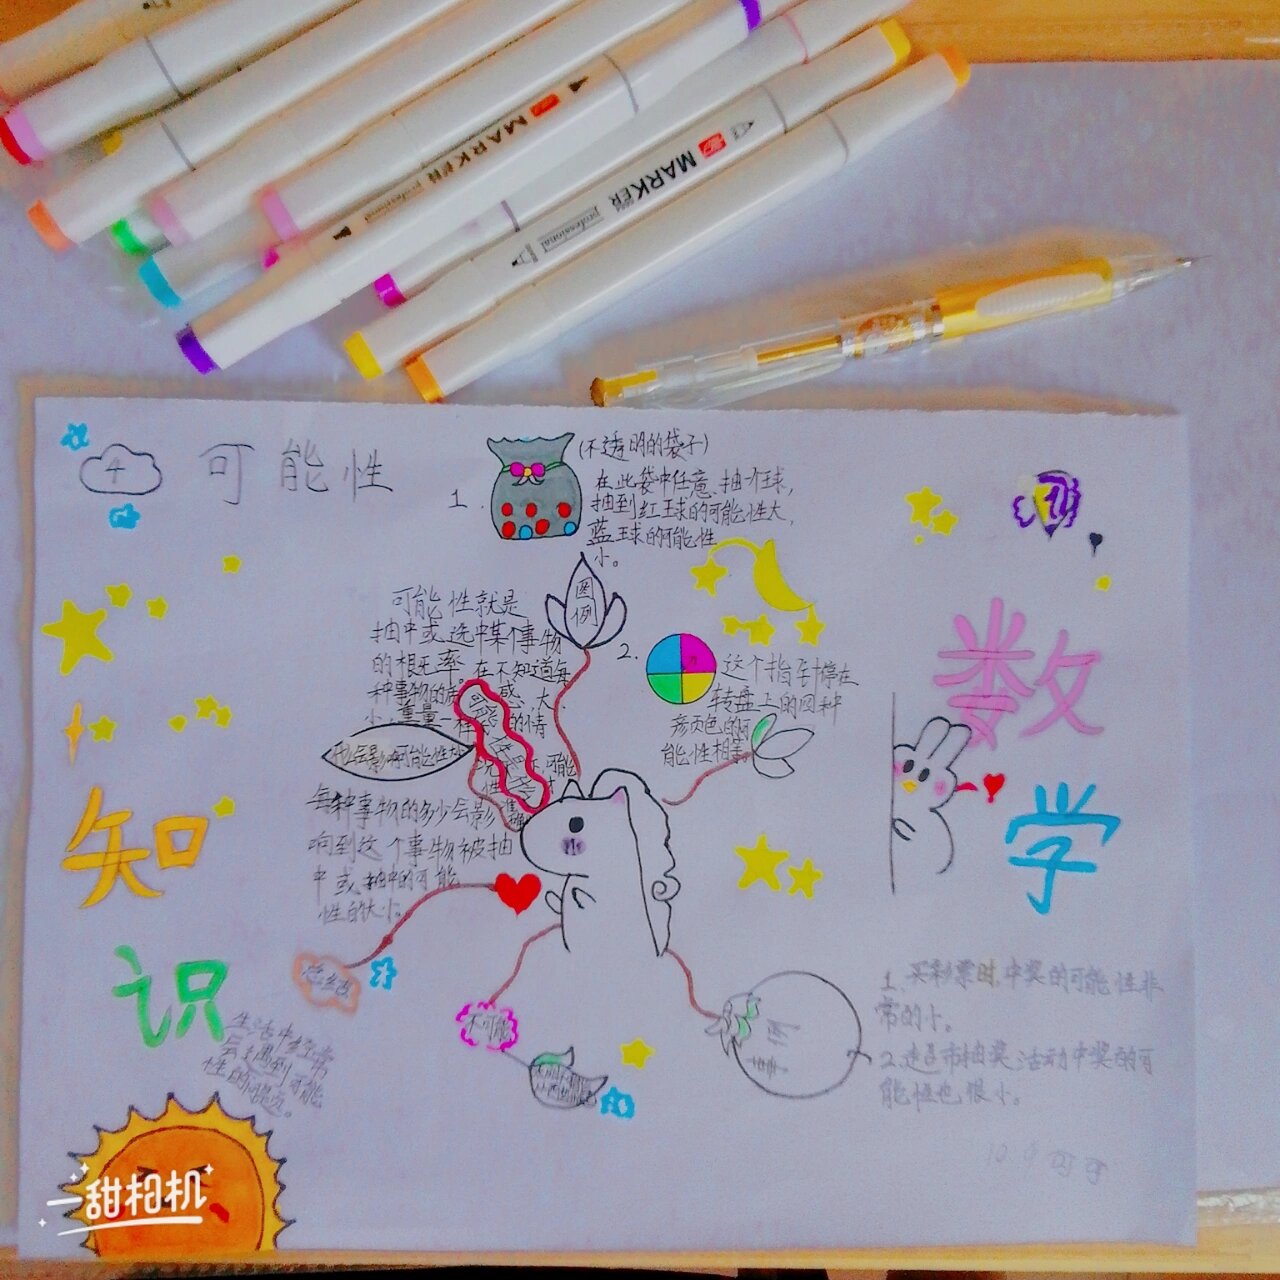 MARKER
professional
MARKER
professional
4
可能性
1.
(不透明的袋子)
在此袋中任意抽一个球,
抽到红球的可能性大,
蓝球的可能性
小。
图
例
可能性就是
抽中或选中某个事物
的概率。在不知道每
种事物的
感、大
小、重量一样的情
可能
性
2.
这个指针停在
转盘上的四种
颜色的可
能性相等。
也会影响可能性
每种事物的多少会影
响到这个事物被抽
中或抽中的可能
性的大小。
准确
数
学
知
识
总结
不可能
生活中经常
会遇到可能
性的问题。
1、买彩票时,中奖的可能性非
常的小。
2.超市抽奖活动中奖的可
能性也很小。
一甜相机